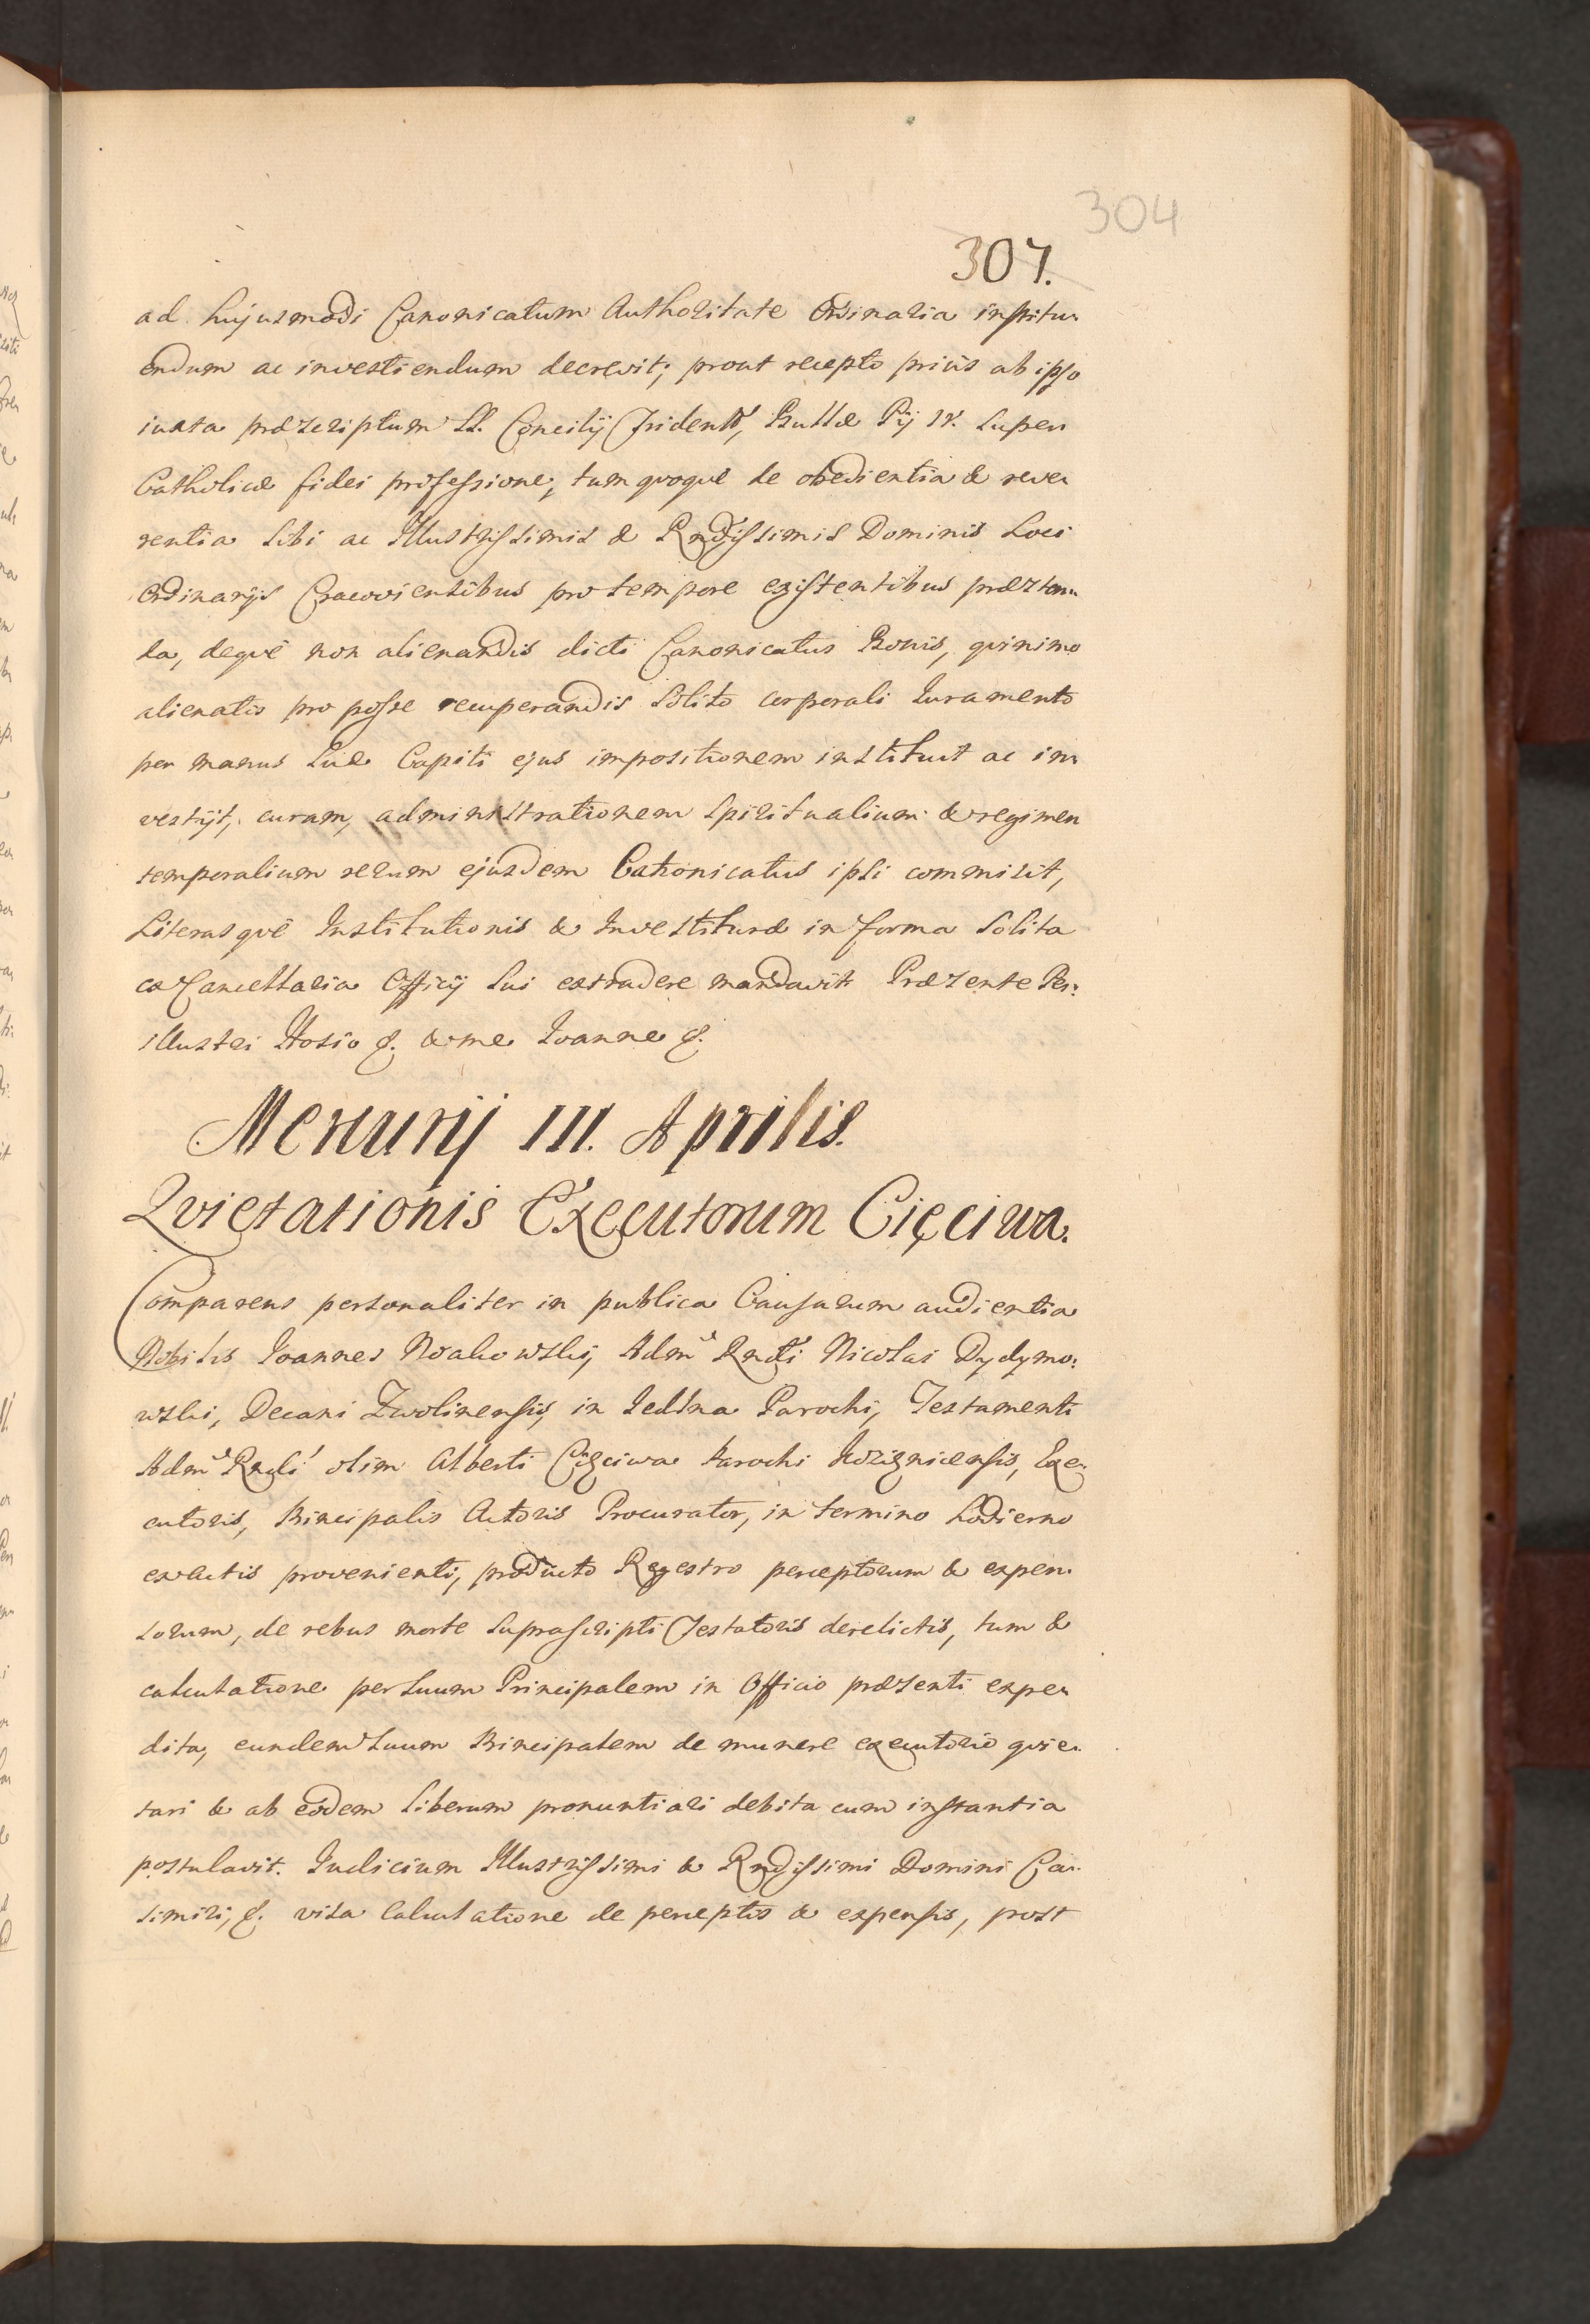 304
307.
ad hujusmodi Canonicatum Authoritate Ordinaria institu-
endum ac investiendum decrevit; prout recepto priùs ab ipso
iuxta præscriptum SS. Concilij Tridentt, Bullæ Pij IV. super
Catholicæ fidei professione, tum quoque de obedientia & reve-
rentia sibi ac Illustrissimis & Rndissimis Dominis Loci
Ordinarijs Cracoviensibus pro tempore existentibus præstan-
da, deque non alienandis dicti Canonicatus Bonis, quinimo
alienatis pro posse recuperandis solito corporali Iuramento
per manus suæ Capiti ejus impositionem instituit ac in-
vestijt, curam, administrationem spiritualium & regimen
temporalium rerum ejusdem Canonicatus ipsi commisit,
Literasquè Institutionis & Investituræ in forma solita
ex Cancellaria Officij sui extradere mandavit Præsente Per-
illustri Hosio &. & me Ioanne &.
Mercurij III. Aprilis.
Qvietationis Executorum Cięciwa.
Comparens personaliter in publica Causarum audientia
Nobilis Ioannes Noakowski, Adm Rndi Nicolai Dydymo-
wski, Decani Zwolinensis, in Jedlna Parochi, Testamenti
Adm Rndi olim Alberti Cięciwa Parochi Kozignicensis, Exe-
cutoris, Principalis Actoris Procurator, in termino hodierno
ex actis provenienti, producto Regestro perceptorum & expen-
sorum, de rebus morte suprascripti Testatoris derelictis, tum &
calculatione per suum Principalem in Officio præsenti expe-
dita, eundem suum Principalem de munere executorio quie-
tari & ab eodem liberum pronuntiari debita cum instantia
postulavit. Iudicium Illustrissimi & Rndissimi Domini Ca-
simiri, &. visa Calculatione de perceptis & expensis, post